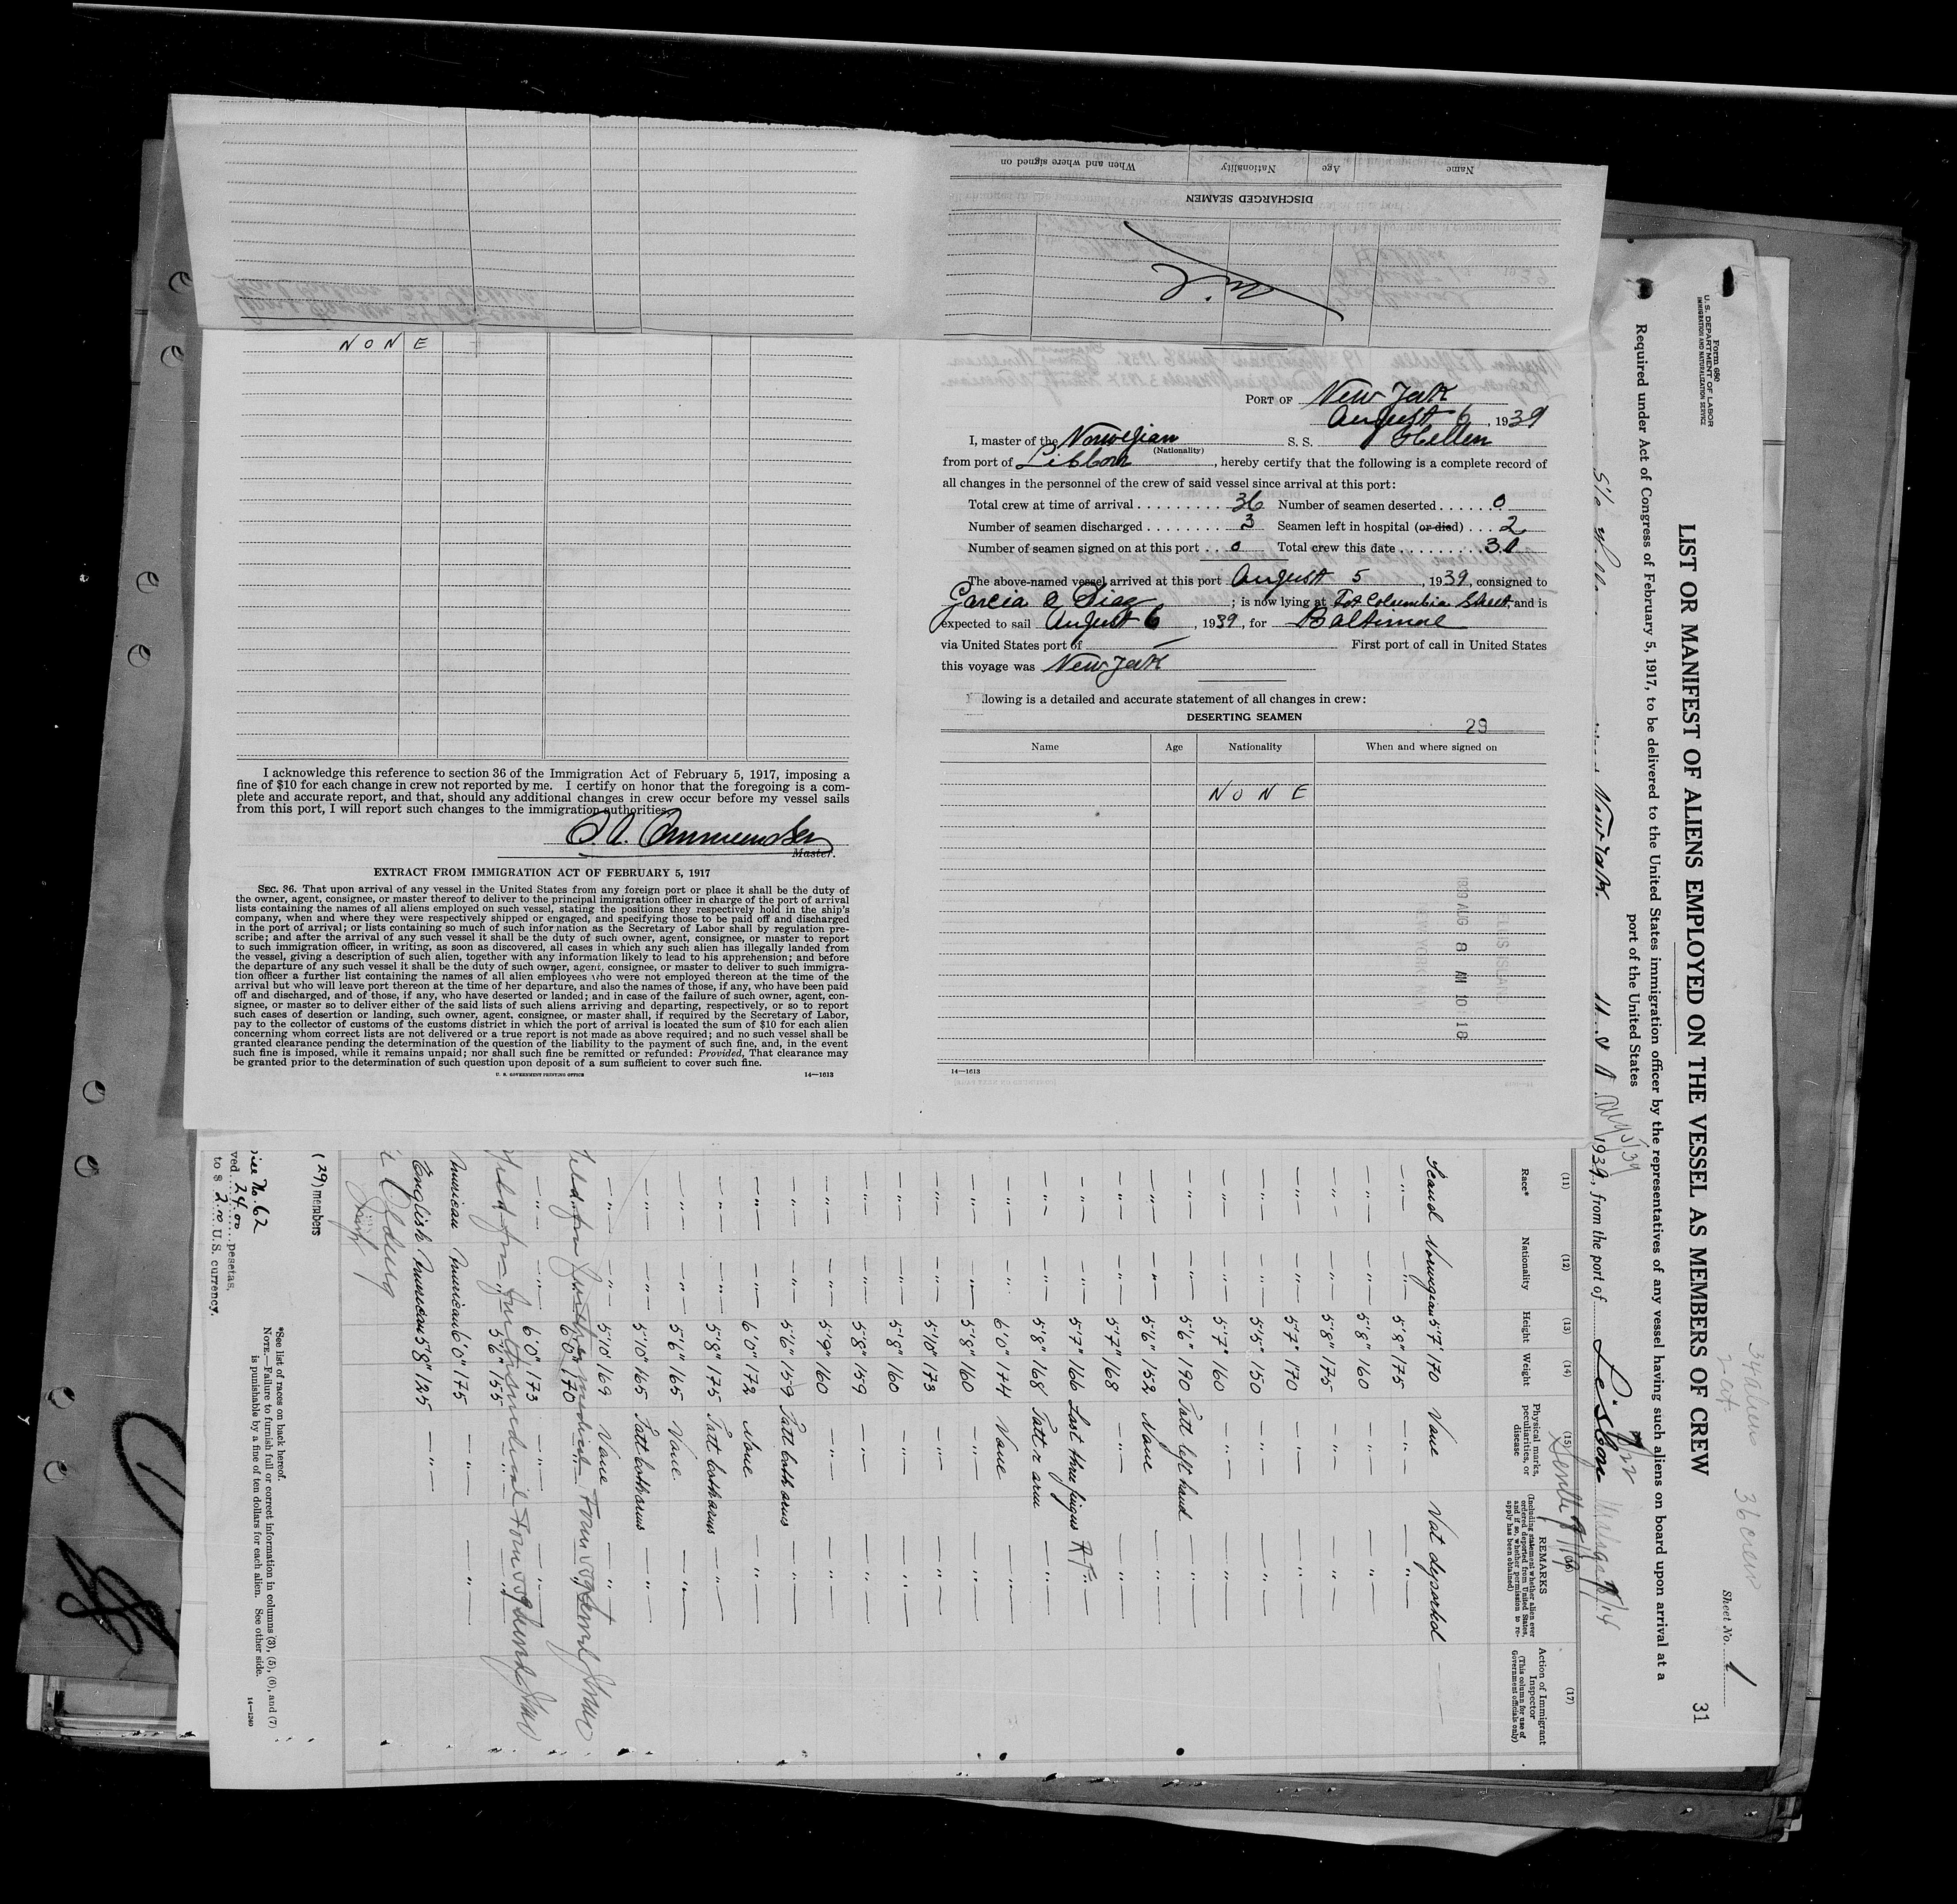 When and where signed on
Nationality
Age
Name
DISCHARGED SEAMEN
NONE
PORT OF New York
August 6, 1939
I, master of the Norwegian S. S. Hellen
(Nationality)
from port of Lisbon, hereby certify that the following is a complete record of
all changes in the personnel of the crew of said vessel since arrival at this port:
Total crew at time of arrival . . . . . . . . . . 36 Number of seamen deserted . . . . . . 0
Number of seamen discharged . . . . . . . . 3 Seamen left in hospital (or died) . . . . 2
Number of seamen signed on at this port . . . 0 Total crew this date . . . . . . . . . 31
The above-named vessel arrived at this port August 5, 1939, consigned to
Garcia & Diaz; is now lying at Fot Columbia Street, and is
expected to sail August 6, 1939, for Baltimore
via United States port of — First port of call in United States
this voyage was New York
lowing is a detailed and accurate statement of all changes in crew:
DESERTING SEAMEN
29
Name Age Nationality When and where signed on
NONE
ELLIS ISLAND
1939 AUG 8 AM 10 18
NEW YORK, N.Y.
14—1613
I acknowledge this reference to section 36 of the Immigration Act of February 5, 1917, imposing a
fine of $10 for each change in crew not reported by me. I certify on honor that the foregoing is a com-
plete and accurate report, and that, should any additional changes in crew occur before my vessel sails
from this port, I will report such changes to the immigration authorities.
Master.
EXTRACT FROM IMMIGRATION ACT OF FEBRUARY 5, 1917
SEC. 36. That upon arrival of any vessel in the United States from any foreign port or place it shall be the duty of
the owner, agent, consignee, or master thereof to deliver to the principal immigration officer in charge of the port of arrival
lists containing the names of all aliens employed on such vessel, stating the positions they respectively hold in the ship's
company, when and where they were respectively shipped or engaged, and specifying those to be paid off and discharged
in the port of arrival; or lists containing so much of such information as the Secretary of Labor shall by regulation pre-
scribe; and after the arrival of any such vessel it shall be the duty of such owner, agent, consignee, or master to report
to such immigration officer, in writing, as soon as discovered, all cases in which any such alien has illegally landed from
the vessel, giving a description of such alien, together with any information likely to lead to his apprehension; and before
the departure of any such vessel it shall be the duty of such owner, agent, consignee, or master to deliver to such immigra-
tion officer a further list containing the names of all alien employees who were not employed thereon at the time of the
arrival but who will leave port thereon at the time of her departure, and also the names of those, if any, who have been paid
off and discharged, and of those, if any, who have deserted or landed; and in case of the failure of such owner, agent, con-
signee, or master so to deliver either of the said lists of such aliens arriving and departing, respectively, or so to report
such cases of desertion or landing, such owner, agent, consignee, or master shall, if required by the Secretary of Labor,
pay to the collector of customs of the customs district in which the port of arrival is located the sum of $10 for each alien
concerning whom correct lists are not delivered or a true report is not made as above required; and no such vessel shall be
granted clearance pending the determination of the question of the liability to the payment of such fine, and, in the event
such fine is imposed, while it remains unpaid; nor shall such fine be remitted or refunded: Provided, That clearance may
be granted prior to the determination of such question upon deposit of a sum sufficient to cover such fine.
U. S. GOVERNMENT PRINTING OFFICE 14—1613
Form 680
U. S. DEPARTMENT OF LABOR
IMMIGRATION AND NATURALIZATION SERVICE
34 aliens 36 crew
Sheet No. 1
31
LIST OR MANIFEST OF ALIENS EMPLOYED ON THE VESSEL AS MEMBERS OF CREW
Required under Act of Congress of February 5, 1917, to be delivered to the United States immigration officer by the representatives of any vessel having such aliens on board upon arrival at a
port of the United States
New York 1939, from the port of Lisbon
Seville
(11) (12) (13) (14) (15) (16) (17)
Race* Nationality Height Weight Physical marks, peculiarities, or disease REMARKS (Including statement whether alien ever ordered deported from United States, and if so, whether permission to reapply has been obtained) Action of Immigrant Inspector (This column for use of Government officials only)
Scand Norwegian 5'7" 170 None Not deported
—"— —"— 5'8" 175 —"— —"—
—"— —"— 5'8" 160 —"— —"—
—"— —"— 5'8" 175 —"— —"—
—"— —"— 5'7" 170 —"— —"—
—"— —"— 5'5" 150 —"— —"—
—"— —"— 5'7" 160 —"— —"—
—"— —"— 5'6" 190 Tatt left hand —"—
—"— —"— 5'6" 152 None —"—
—"— —"— 5'7" 168 —"— —"—
—"— —"— 5'7" 166 Last three fingers R.F. —"—
—"— —"— 5'8" 168 Tatt r arm —"—
—"— —"— 6'0" 174 None —"—
—"— —"— 5'8" 160 —"— —"—
—"— —"— 5'10" 173 —"— —"—
—"— —"— 5'8" 160 —"— —"—
—"— —"— 5'8" 159 —"— —"—
—"— —"— 5'9" 160 —"— —"—
—"— —"— 5'6" 159 Tatt both arms —"—
—"— —"— 6'0" 172 None —"—
—"— —"— 5'8" 175 Tatt both arms —"—
—"— —"— 5'6" 165 None —"—
—"— —"— 5'10" 165 Tatt both arms —"—
—"— —"— 5'10" 169 None —"—
Held for further medical Form 559 6'0" 170
—"— —"— 6'0" 173 —"— —"—
Held for further medical Form 559 5'6" 155
American American 6'0" 175 —"— —"—
English American 5'8" 125 —"—
(29) members
No. 62
ved 24.00 pesetas,
to $ 2.00 U.S. currency.
*See list of races on back hereof.
NOTE.—Failure to furnish full or correct information in columns (3), (5), (6), and (7)
is punishable by a fine of ten dollars for each alien. See other side.
14—1240